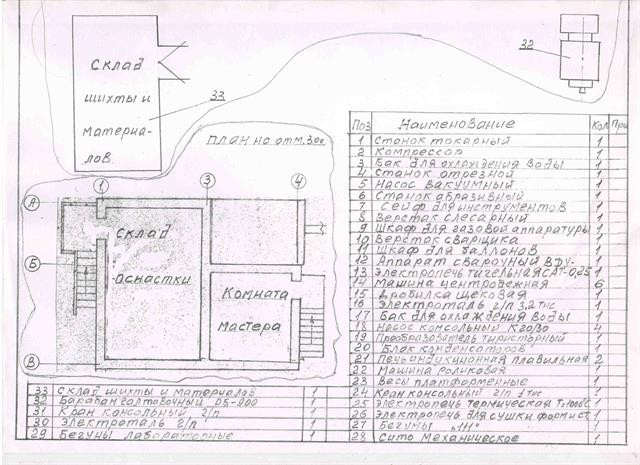 Склад
шихты и
материа-
лов.
33
32
План на отм. 3.00
1
3
4
А
Б
В
Склад
оснастки
Комната
мастера
Поз Наименование Кол При
1 Станок токарный 1
2 Компрессор 1
3 Бак для охлаждения воды 1
4 Станок отрезной 1
5 Насос вакуумный 1
6 Станок абразивный 1
7 Сейф для инструментов 1
8 Верстак слесарный 1
9 Шкаф для газовой аппаратуры 1
10 Верстак сварщика 1
11 Шкаф для баллонов 1
12 Аппарат сварочный ВДУ- 1
13 Электропечь тигельная САТ-0,25 1
14 Машина центробежная 6
15 Дробилка щековая 1
16 Электроталь г/п 3,2 тнс 1
17 Бак для охлаждения воды 1
18 Насос консольный К20/30 4
19 Преобразователь тиристорный 1
20 Блок конденсаторов 1
21 Печь индукционная плавильная 2
22 Машина роликовая 1
23 Весы платформенные 1
24 Кран консольный г/п 1тнс 1
25 Электропечь термическая 1
26 Электропечь для сушки форм и ст. 1
27 Бегуны "111" 1
28 Сито механическое 1
33 Склад шихты и материалов 1
32 Барабан галтовочный ОБ-900 1
31 Кран консольный г/п 1
30 Электроталь г/п 1
29 Бегуны лабораторные 1